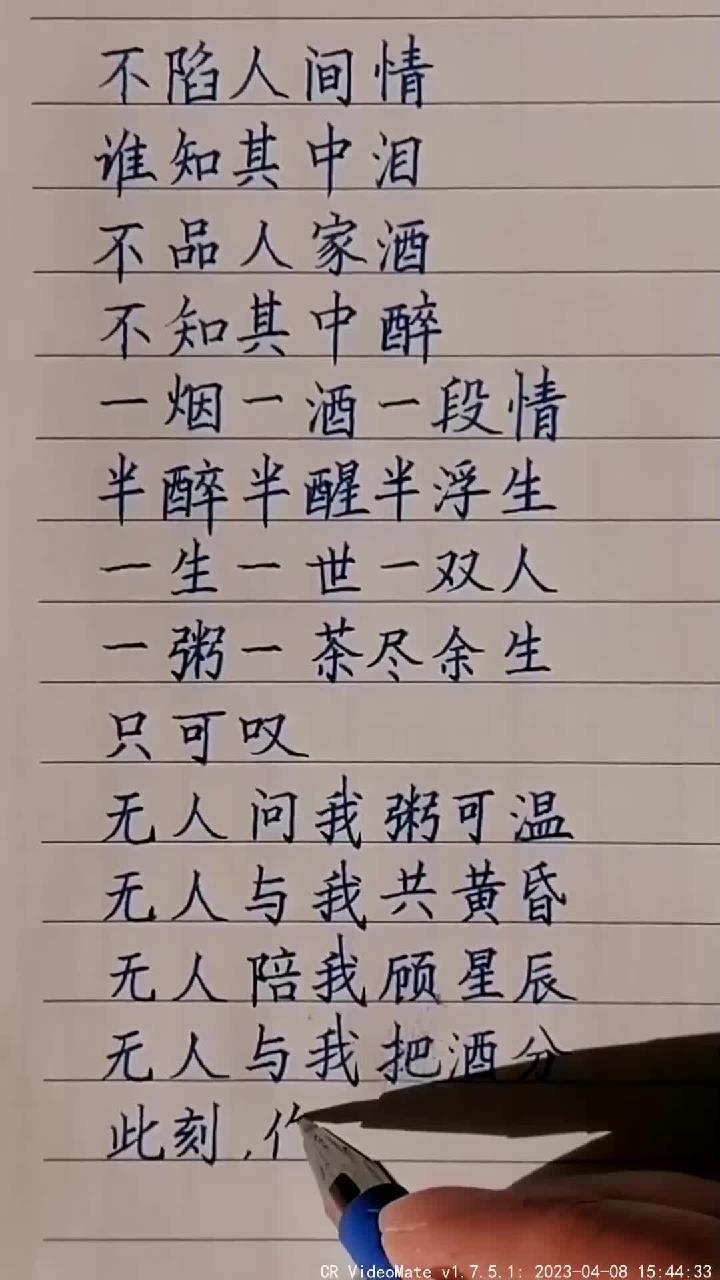 不陷人间情
谁知其中泪
不品人家酒
不知其中醉
一烟一酒一段情
半醉半醒半浮生
一生一世一双人
一粥一茶尽余生
只可叹
无人问我粥可温
无人与我共黄昏
无人陪我顾星辰
无人与我把酒分
此刻，
CR VideoMate v1.7.5.1: 2023-04-08 15:44:33